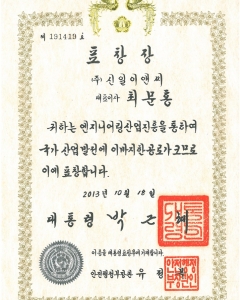 제 191419 호
표 창 장
(주) 신일이앤씨
대표이사 최문통
귀하는 엔지니어링산업진흥을 통하여
국가 산업발전에 이바지한 공로가 크므로
이에 표창합니다
2013년 10월 18일
대통령 박근혜
이 증을 대통령표창부에 기재합니다
안전행정부장관 유정복